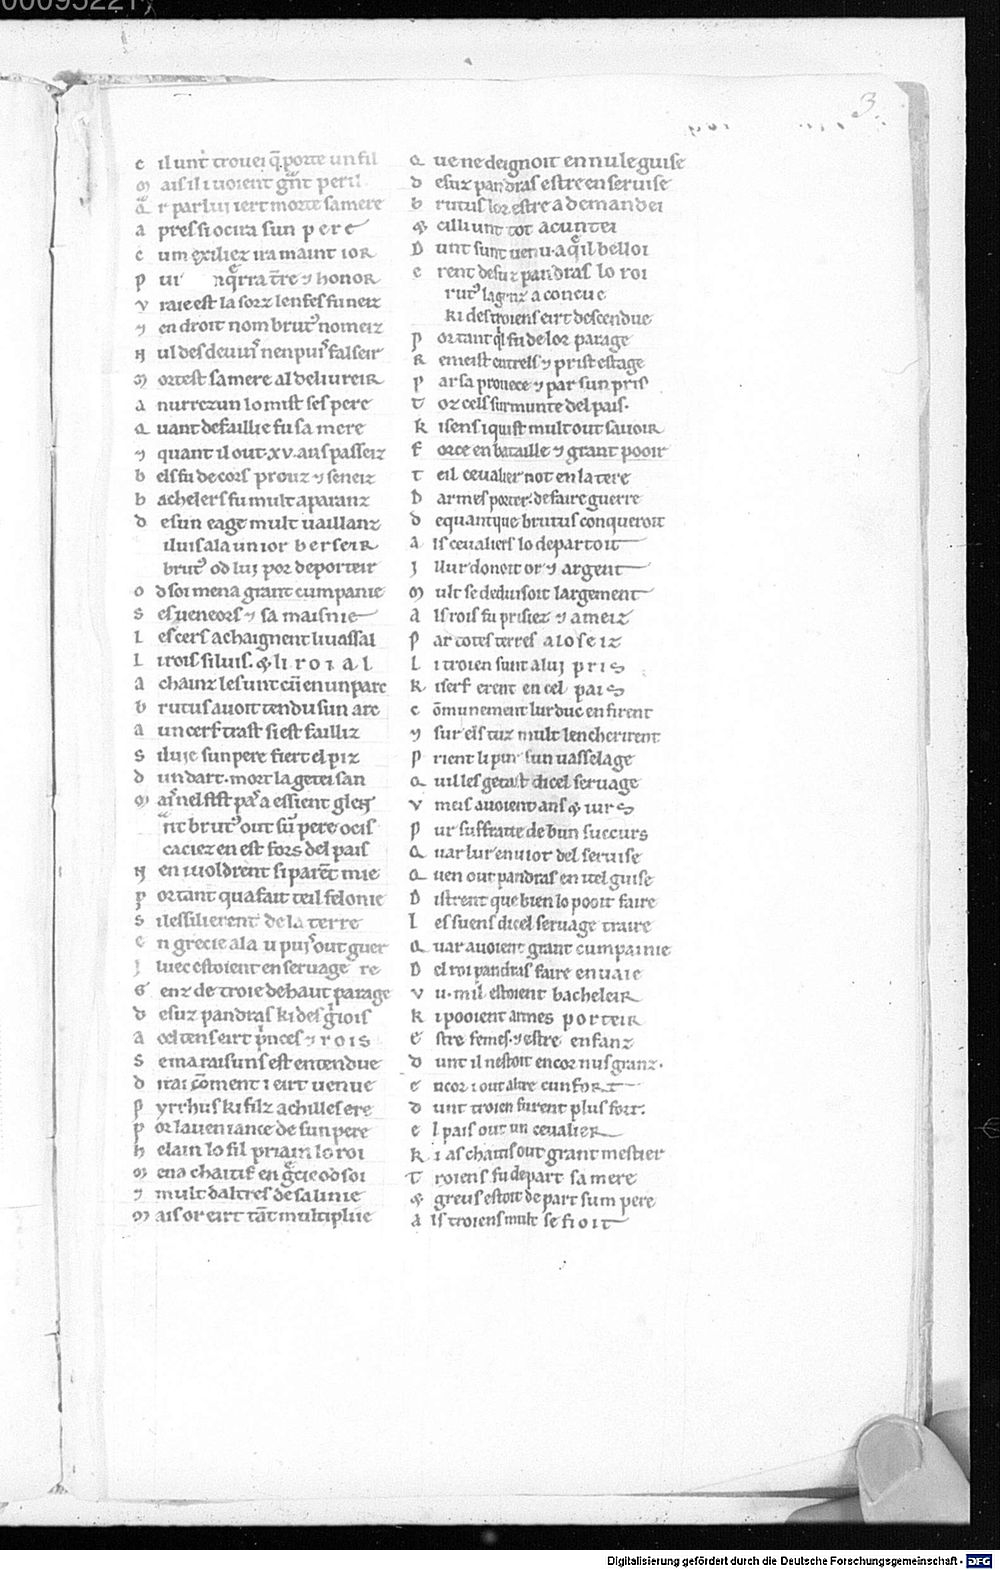 00095221,
3
c il unt trouei q̄ porte un fil
m ais il i uoient gͣnt peril
q̄ r par lui iert morte sa mere
a pres si ocira sun pere
c um exiliez ira maint ior
p ui nq̄rra tr̄e ⁊ honor
v raie est la sorz lenfes fu neiz
⁊ en droit nom brutꝰ nomeiz
N ul des deuinꝰ nen puisꝰ falseir
m ort est sa mere al deliureir
a nurrezun lo mist ses pere
Q uant defaillie fu sa mere
⁊ quant il out .xv. ans passeiz
b els fu de cors prouz ⁊ seneiz
b achelers fu mult aparanz
d e sun eage mult uaillanz
iluis ala un ior berseir
brutꝰ od lui por deporteir
o d soi mena grant cumpanie
s es ueneors ⁊ sa maisnie
L es cers achaignent li uassal
L i rois siluis. ⁊ li roial
a chainz les unt cū en un parc
b rutus auoit tendu sun arc
a un cerf trast si est failliz
s iluie sun pere fiert el piz
d un dart. mort la getei san
m aisꝰ nel fist pasꝰ a essient gleꝫ
nt brutꝰ out sū pere ocis
caciez en est fors del pais
N en i uoldrent si parēt mie
p ortant qua fait teil felonie
s i lessilierent de la terre
e n grecie ala u puisꝰ out guer
i luec estoient en seruage re
G enz de troie de haut parage
d esuz pandras ki des gⁱiois
a cel tens eirt pⁱnces ⁊ rois
s e ma raisuns est entendue
d irai cōment i eirt uenue
p yrrhus ki filz achilles ere
p or la ueniance de sun pere
h elain lo fil priain lo roi
m ena chaitif en gͣcie od soi
⁊ mult daltres de sa linie
m ais or eirt tāt multipliie
Q ue ne deignoit en nule guise
d esuz pandras estre en seruise
b rutus lor estre a demandei
⁊ cil li unt tot acuntei
D unt sunt uenu. a qͣil belloi
e rent desuz pandras lo roi
rutꝰ la genz a coneue
ki des troiens eirt descendue
P ortant qⁱl fu de lor parage
R emeist entrels ⁊ prist estage
p ar sa prouece ⁊ par sun pris
t oz cels surmunte del pais.
k i sens i quist mult out sauoir
f orce en bataille ⁊ grant pooir
t eil ceualier not en la tere
D armes porter. de faire guerre
d e quantque brutus conqueroit
a ls ceualiers lo departoit
i l lur donoit or ⁊ argent
m ult se deduisoit largement
a ls rois fu prisiez ⁊ ameiz
p ar totes terres aloseiz
L i troien sunt a lui pris
k i serf erent en cel pais
c ōmunement lur duc en firent
⁊ sur els tuz mult lencherirent
p rient li pur sun uasselage
Q uil les getast dicel seruage
v meis auoient ans ⁊ iurs
p ur suffraite de bun succurs
Q uar lur enuiot del seruise
Q uen out pandras en itel guise
D istrent que bien lo pooit faire
l es suens dicel seruage traire
Q uar auoient grant cumpainie
D el roi pandras faire enuaie
v u. mil estoient bacheleir
k i pooient armes porteir
e stre femes. ⁊ estre enfanz
d unt il nestoit encor nus granz.
e ncor i out altre cunfort
d unt troien furent plus fort.
e l pais out un ceualier
k i as chaitis out grant mestier
T roiens fu de part sa mere
⁊ greus estoit de part sum pere
a ls troiens mult se fioit
Digitalisierung gefördert durch die Deutsche Forschungsgemeinschaft - DFG